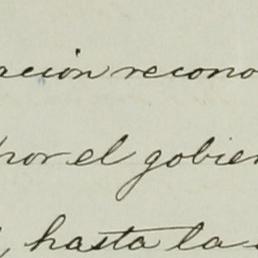 ación recono
por el gobier
, hasta la